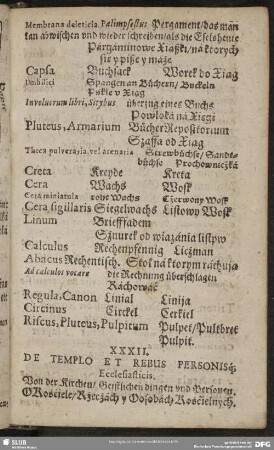 Membrana deleticia, Palimpsestus. Pergament/das man
kan abwischen und wieder schreiben/als die Eselsheute
Pargaminowe Xiąßki/na ktorych
się y piße y maże
Capsa Buchsack Worek do Xiąg
Umbilici Spangen an Büchern/Buckeln
Pukle v Xiąg
Involucrum libri, Sittybus überzug eines Buchs
Powłoka na Xięgi
Pluteus, Armarium Bücher Repositorium
Szaffa od Xiag
Theca pulveraria, vel arenaria Strewbüchse/Sandebüchse
Prochowniczka
Creta Kreyde Kreta
Cera Wachs Wosk
Cera miniatula rohe Wachs Czerwony Wosk
Cera sigillaris Siegelwachs Listowy Wosk
Linum Brieffadem
Sznurek do wiązania listow
Calculus Rechenpfennig Liczman
Abacus Rechentisch. Stoł na ktorym rachuja
Ad calculos vocare die Rechnung überschlagen
Ráchowáć
Regula, Canon Linial Linija
Circinus Circkel Cerkiel
Riscus, Pluteus, Pulpitum Pulpet/Pultbret
Pulpit.
XXXII.
DE TEMPLO ET REBUS PERSONISq;
Ecclesiasticis.
Von der Kirchen/Geistlichen dingen und Personen.
O Kościele/Rzeczách y Osobách Kościelnych.
SLUB